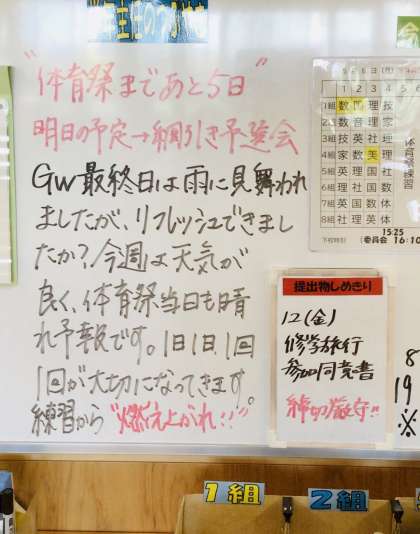 学年主任のつぶやき
"体育祭まであと5日"
明日の予定→綱引き予選会
GW最終日は雨に見舞われ
ましたが、リフレッシュできまし
たか?今週は天気が
良く、体育祭当日も晴
れ予報です。1日1日、1回
1回が大切になってきます。
練習から"燃え上がれ!!"
5月8日(月)
1 2 3 4
1組 数 国 理 技
2組 数 音 理 家
3組 技 英 社 理
4組 家 数 美 理
5組 英 理 国 数
6組 理 社 国 数
7組 英 国 数 体
8組 社 理 英 体
体育祭練習
下校時刻
15:25
(委員会 16:10
提出物しめきり
12(金)
修学旅行
参加同意書
締切厳守!!
8
19
※
1組
2組